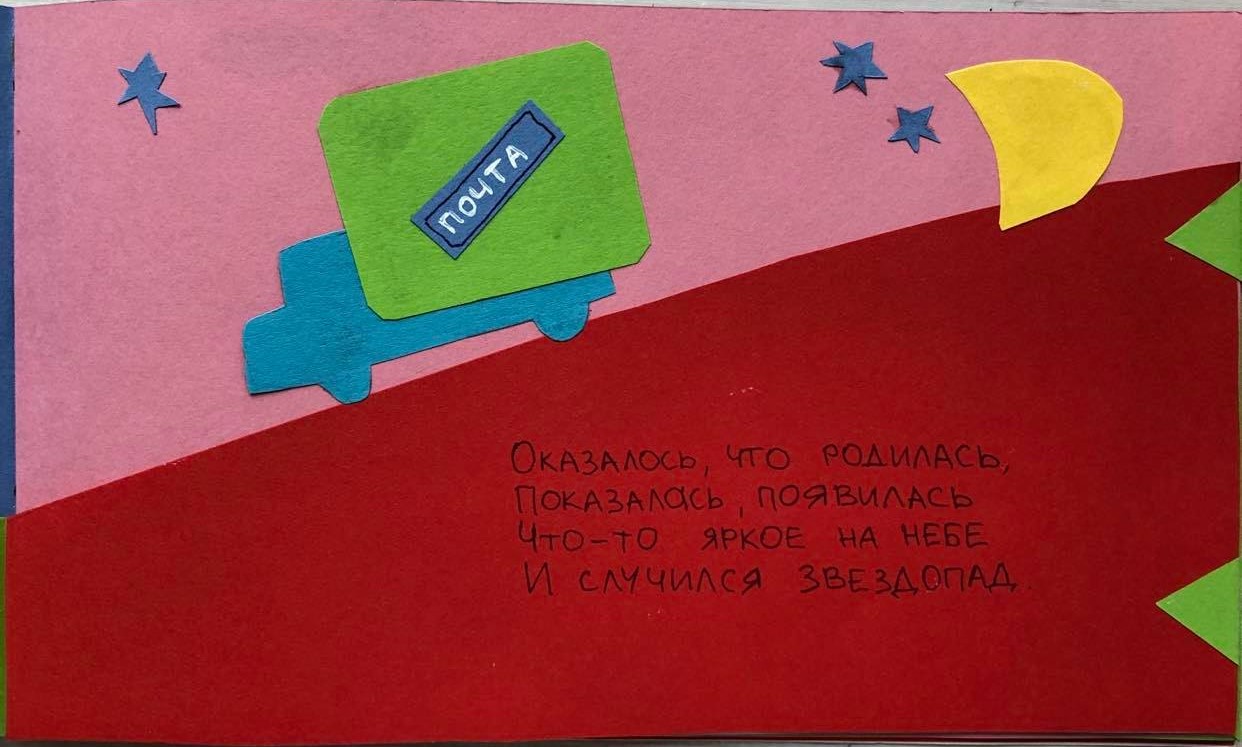 ПОЧТА
Оказалось, что родилась,
Показалась, появилась
Что-то яркое на небе
И случился звездопад.